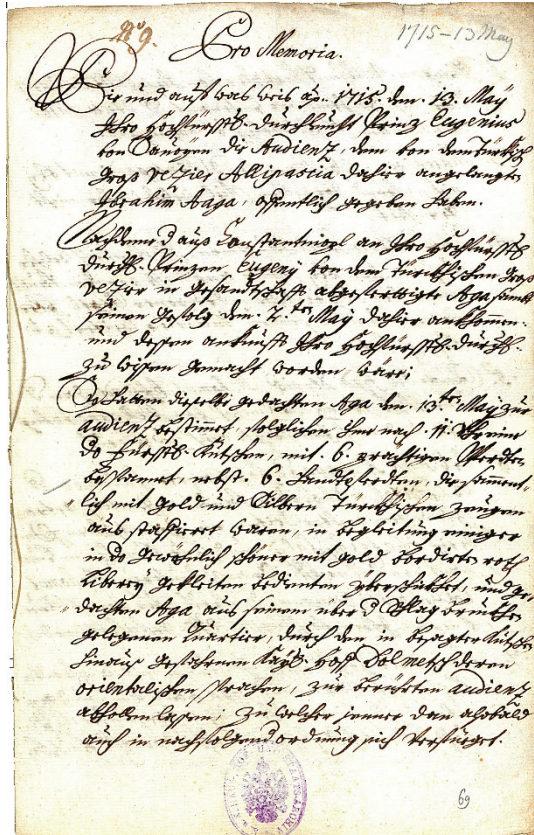 No 9.
1715 – 13 May
Pro Memoria.
Wie und auf was weis ao. 1715. den. 13. May
Ihro Hochfürstl. Durchleucht Prinz Eugenius
von Savoyen die Audienz, dem von dem Türkisch
Groß Vezier Allipascia dahier angelangten
Ibrahim Aga, offentlich gegeben haben.
Nachdeme d aus Constantinopl an Ihro Hochfürstl
Durchl. Prinzen Eugeny von dem Türckischen Groß
Vezier in Gesandtschafft abgefertigte Aga sambt
seinem Gefolg den. 2.ten May dahier ankhommen.
und dessen ankunfft Ihro Hochfürstl. Durchl.
zu wissen gemacht worden ware;
So hatten dieselbe gedachten Aga den. 13.ten May zur
Audienz bestimmet, folglichen ihme nach. 11. Uhr eine
do Fürstl. Kutschen, mit. 6. prächtigen Pferdten
bespannet, nebst. 6. Handtpferdten, die sament-
lich mit Gold und Silbern Türckischen zeugen
aus staffieret waren, in begleitung einiger
in do gewöhnlich schöner mit gold bordirten roth
Liberey gekleiten bedienten überschicket, und ge-
dachten Aga aus seinem uber d Schlag brukhen
gelegenen Quartier, durch den in besagter Kutschen
hinaus gefahrnen Kays. Hoff Dolmetsch deren
orientalischen sprachen, zur berührten audienz
abhollen lassen, zu welcher jenner dan alsobald
auch in nachfolgend ordnung sich verfüget.
69